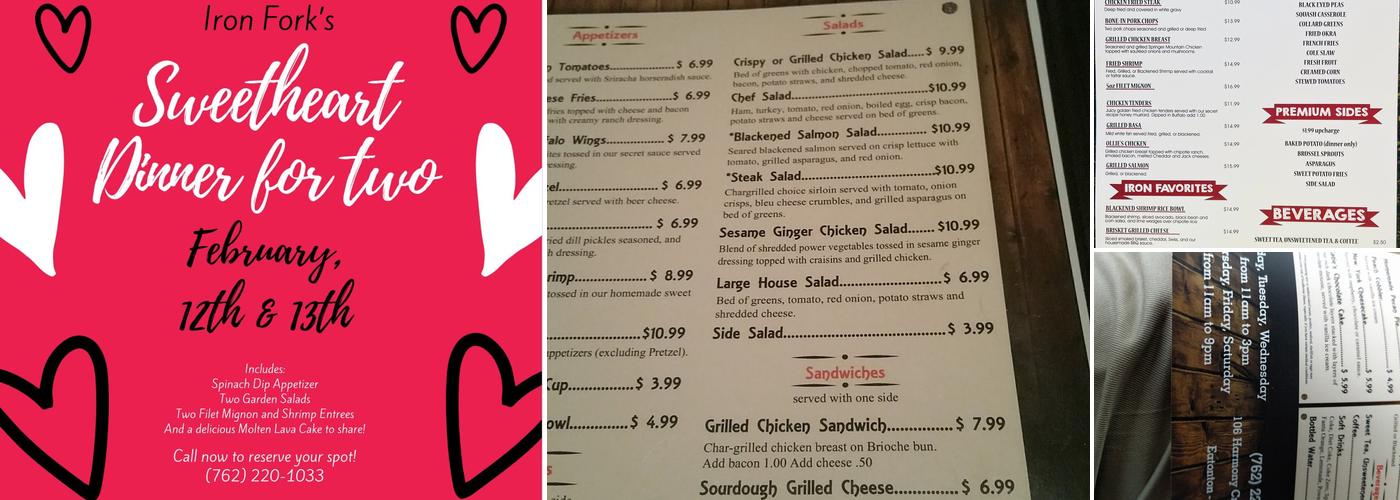 Iron Fork's
Sweetheart
Dinner for two
February,
12th & 13th
Includes:
Spinach Dip Appetizer
Two Garden Salads
Two Filet Mignon and Shrimp Entrees
And a delicious Molten Lava Cake to share!
Call now to reserve your spot!
(762) 220-1033
Appetizers
Tomatoes...................$ 6.99
served with Sriracha horseradish sauce.
Fries.........................$ 6.99
fries topped with cheese and bacon
with creamy ranch dressing.
Wings.....................$ 7.99
tossed in our secret sauce served
$ 6.99
served with beer cheese.
$ 6.99
dill pickles seasoned, and
dressing.
$ 8.99
tossed in our homemade sweet
$10.99
appetizers (excluding Pretzel).
Cup.....................$ 3.99
$ 4.99
Salads
Crispy or Grilled Chicken Salad.....$ 9.99
Bed of greens with chicken, chopped tomato, red onion,
bacon, potato straws, and shredded cheese.
Chef Salad...............................$10.99
Ham, turkey, tomato, red onion, boiled egg, crisp bacon,
potato straws and cheese served on bed of greens.
*Blackened Salmon Salad............$10.99
Seared blackened salmon served on crisp lettuce with
tomato, grilled asparagus, and red onion.
*Steak Salad.............................$10.99
Chargrilled choice sirloin served with tomato, onion
crisps, bleu cheese crumbles, and grilled asparagus on
bed of greens.
Sesame Ginger Chicken Salad.......$10.99
Blend of shredded power vegetables tossed in sesame ginger
dressing topped with craisins and grilled chicken.
Large House Salad.....................$ 6.99
Bed of greens, tomato, red onion, potato straws and
shredded cheese.
Side Salad.................................$ 3.99
Sandwiches
served with one side
Grilled Chicken Sandwich............$ 7.99
Char-grilled chicken breast on Brioche bun.
Add bacon 1.00 Add cheese .50
Sourdough Grilled Cheese............$ 6.99
CHICKEN FRIED STEAK $10.99
Deep fried and covered in white gravy
BONE IN PORK CHOPS $13.99
Two pork chops seasoned and grilled or deep fried
GRILLED CHICKEN BREAST $12.99
Seasoned and grilled Springer Mountain Chicken
topped with sauteed onions and mushrooms.
FRIED SHRIMP $14.99
Fried, Grilled, or Blackened Shrimp served with cocktail
or tartar sauce.
5oz FILET MIGNON $16.99
CHICKEN TENDERS $11.99
Juicy golden fried chicken tenders served with our secret
recipe honey mustard. Dipped in Buffalo add 1.00
GRILLED BASA $14.99
Mild white fish served fried, grilled, or blackened.
OLLIE'S CHICKEN $14.99
Grilled chicken breast topped with chipotle ranch,
smoked bacon, melted Cheddar and Jack cheeses
GRILLED SALMON $15.99
Grilled, or blackened.
IRON FAVORITES
BLACKENED SHRIMP RICE BOWL $14.99
Blackened shrimp, sliced avocado, black bean and
corn salsa, and lime wedges over chipotle rice
BRISKET GRILLED CHEESE $14.99
Sliced smoked brisket, cheddar, Swiss, and our
housemade BBQ sauce.
BLACK EYED PEAS
SQUASH CASSEROLE
COLLARD GREENS
FRIED OKRA
FRENCH FRIES
COLE SLAW
FRESH FRUIT
CREAMED CORN
STEWED TOMATOES
PREMIUM SIDES
$1.99 upcharge
BAKED POTATO (dinner only)
BRUSSEL SPROUTS
ASPARAGUS
SWEET POTATO FRIES
SIDE SALAD
BEVERAGES
SWEET TEA, UNSWEETENED TEA, & COFFEE $2.50
Tuesday, Wednesday
from 11am to 3pm
Friday, Saturday
from 11am to 9pm
106 Harmony
Eatonton
(762)
Peach Cobbler $ 4.99
New York Cheesecake $ 5.99
Chocolate Cake $ 5.99
served with vanilla ice cream.
Sweet Tea,
Coffee
Soft Drinks
Bottled Water